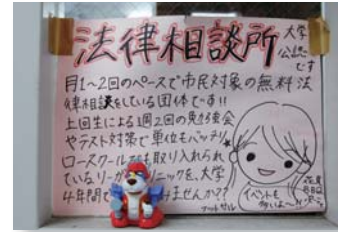 法律相談所
大学
公認
です
月1~2回のペースで市民対象の無料法
律相談をしている団体です!!
上回生による週2回の勉強会
やテスト対策で単位もバッチリ
ロースクールでも取り入れられ
ているリーガルクリニックを、大学
4年間で ませんか??
イベントも
フットサル